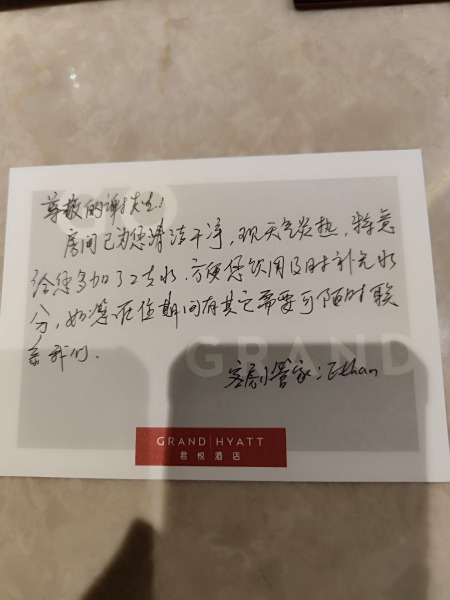 尊敬的谢先生:
房间已为您清洁干净,现天气炎热,特意
给您多加了2支水,方便您饮用及时补充水
分,如您在住期间有其它需要可随时联
系我们.
GRAND
客房小管家:Ethan
GRAND | HYATT
君悦酒店